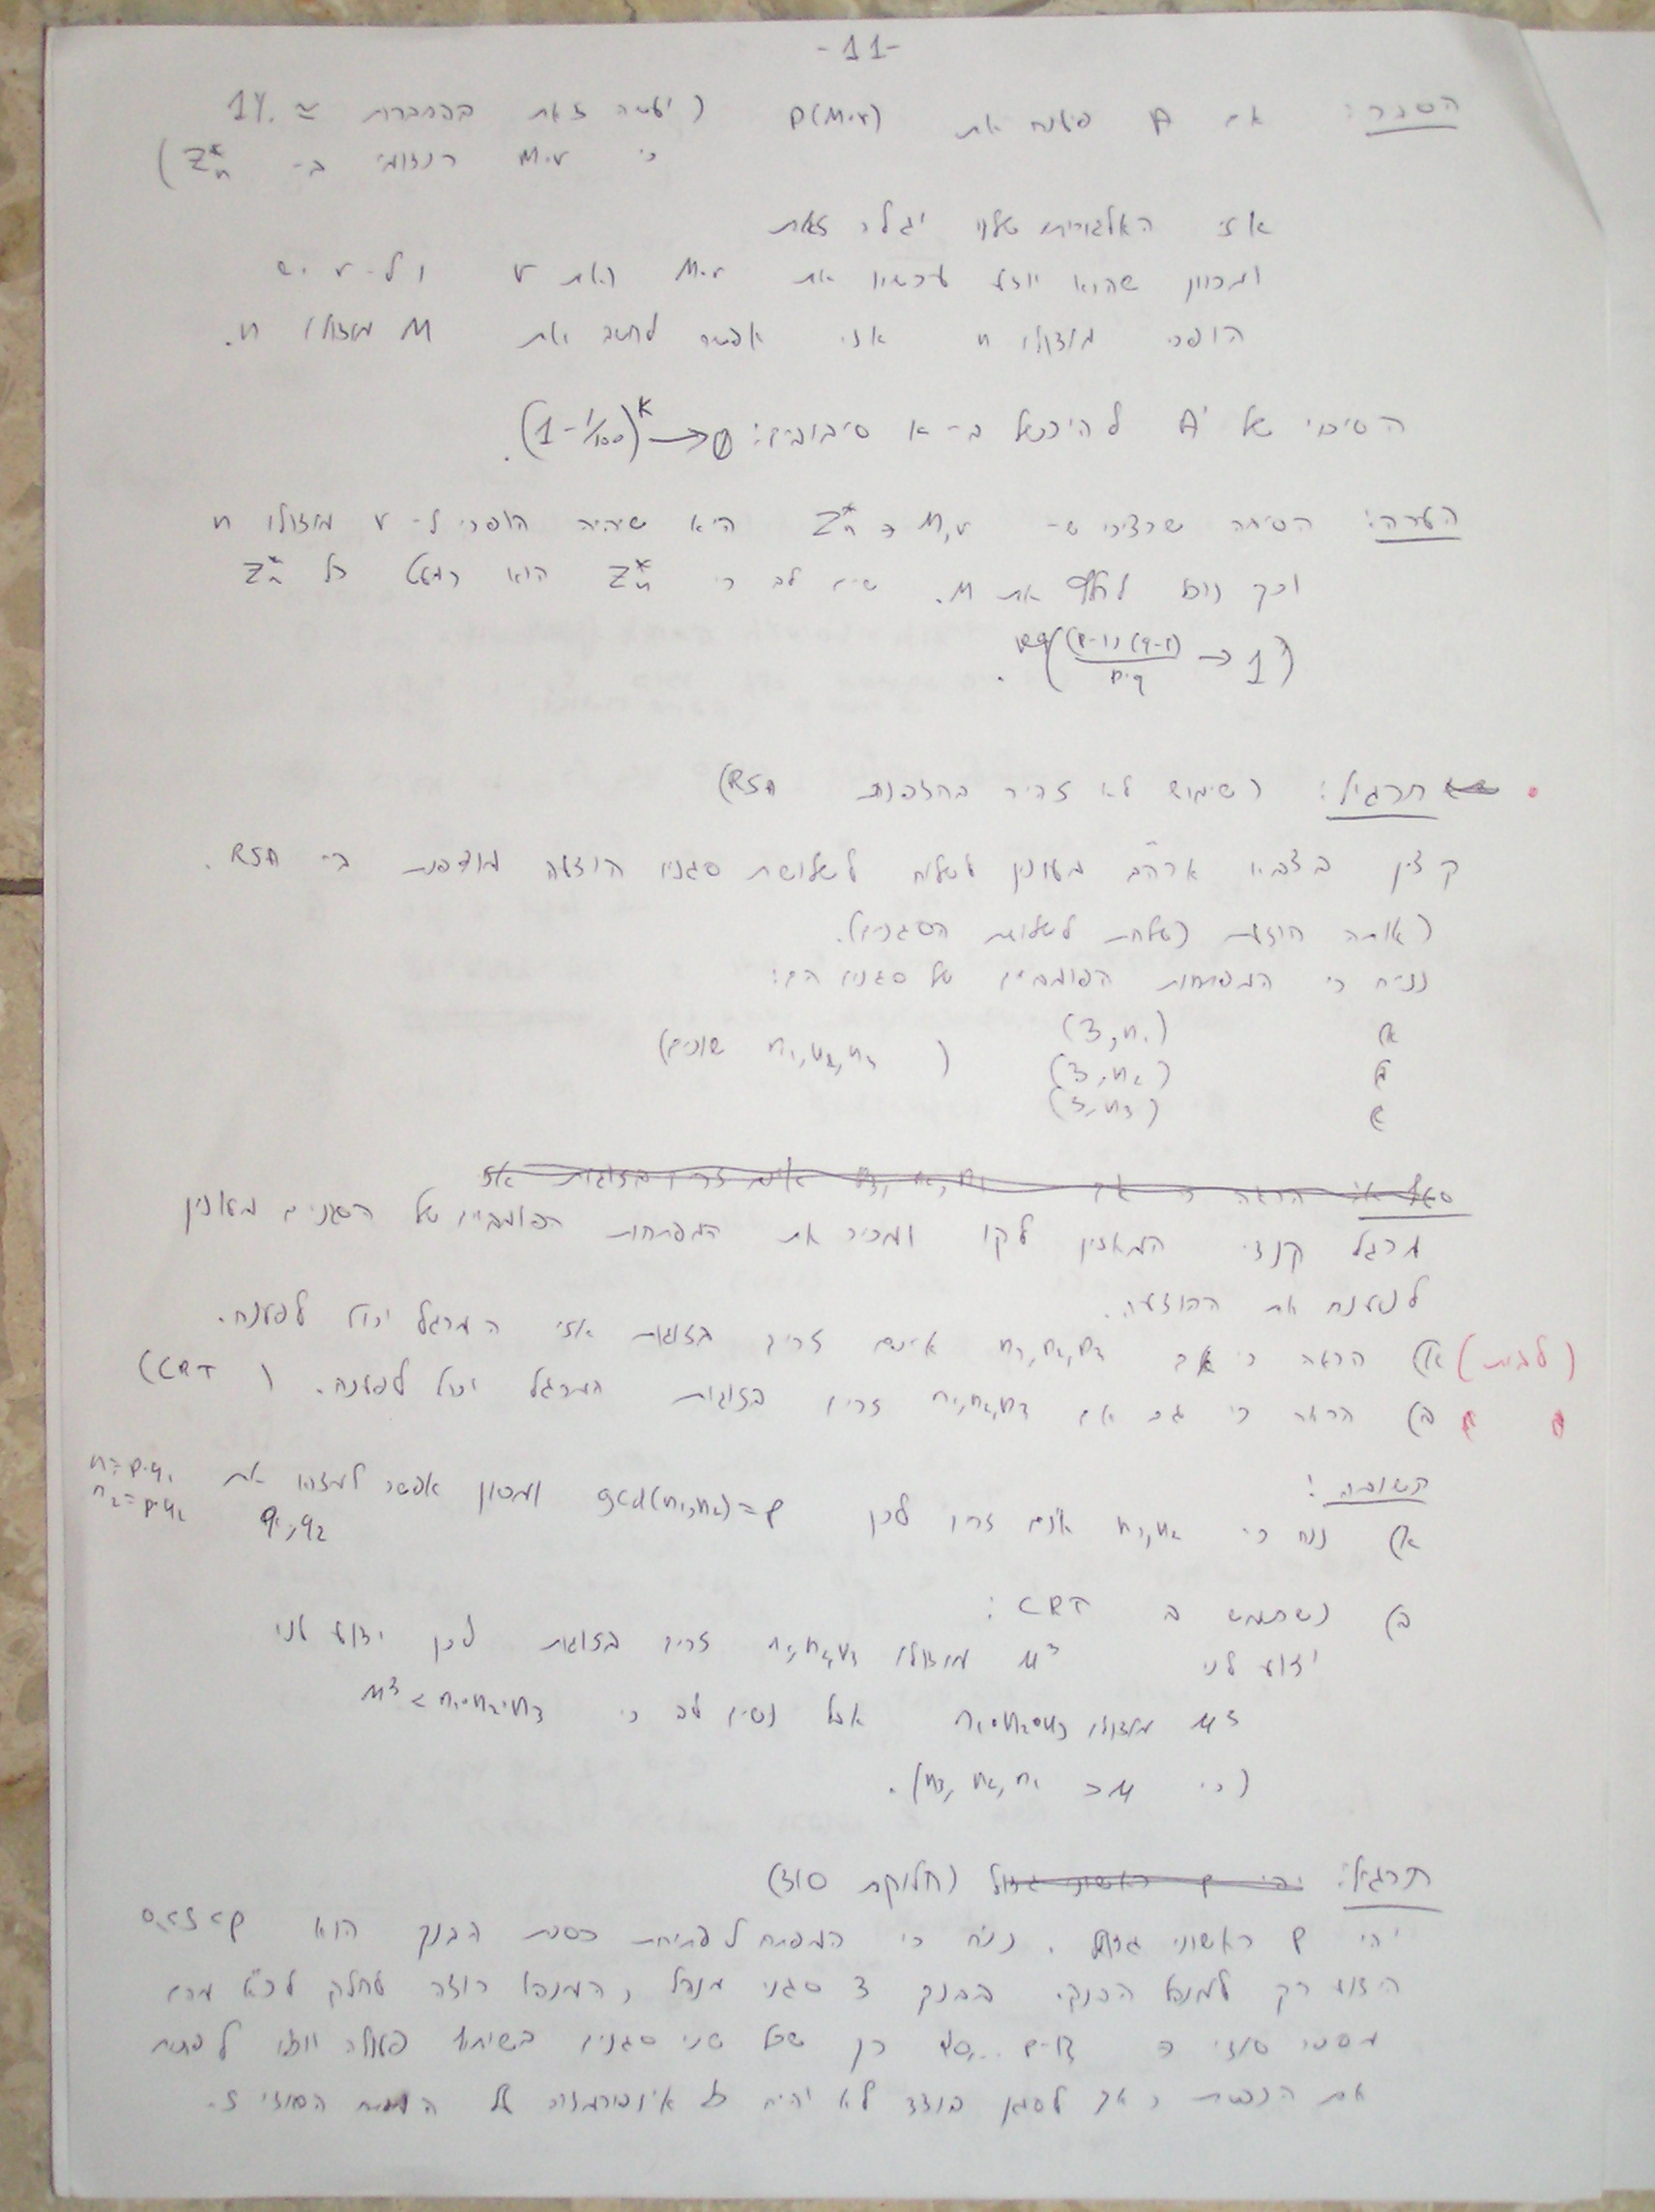 -11-
הסבר: אם A פענח את P(M·r) (יעשה זאת בהסתברות ≃ 1%
כי M·r רנדומי ב- Z*n)
אזי האלגוריתם שלנו יגלה זאת
ומכיוון שהוא יודע עכשיו את M·r ואת r ול-r יש
הופכי מודולו n אני אפשר לחשב את M מודולו n.
הסיכוי של A' להיכשל ב-K סיבובים: (1-1/100)^K → 0.
הערה: הסיבה שרצינו ש- M,r ∈ Z*n היא שיהיה הופכי ל-r מודולו n
וכך נוכל לחלץ את M. שים לב כי Z*n הוא כמעט כל Zn
((p-1)(q-1)/p·q → 1).
תרגיל: (שימוש לא זהיר בהצפנת RSA)
קצין בצבא ארה"ב מעונין לשלוח לשלושת סגניו הודעה מוצפנת ב- RSA.
(אותה הודעה נשלחת לשלושת הסגנים).
נניח כי המפתחות הפומביים של סגניו הם:
א) (3,n1)
ב) (3,n2) (n1,n2,n3 שונים)
ג) (3,n3)
הראה כי אם n1,n2,n3 אינם זרים בזוגות אז
מרגל קנדי המאזין לקו ומכיר את המפתחות הפומביים של הסגנים מעונין
לפענח את ההודעה.
(לבית) א) הראה כי אם n1,n2,n3 אינם זרים בזוגות אזי המרגל יכול לפענח.
ב) הראה כי גם אם n1,n2,n3 זרים בזוגות המרגל יכול לפענח. (CRT)
תשובה:
א) נניח כי n1,n2 אינם זרים לכן gcd(n1,n2)=p ומכאן אפשר למצוא את q1,q2 n1=p·q1 n2=p·q2
ב) נשתמש ב CRT:
ידוע לנו M³ מודולו n1,n2,n3 זרים בזוגות לכן ידוע לנו
M³ מודולו n1·n2·n3 אבל נשים לב כי M³<n1·n2·n3
(כי M< n1, n2, n3).
תרגיל: יהי p ראשוני גדול (חלוקת סוד)
יהי p ראשוני גדול. נניח כי המפתח לפתיחת כספת הבנק הוא 0<S<p
הידוע רק למנהל הבנק. בבנק 3 סגני מנהל, המנהל רוצה לחלק לכ"א מהם
מספר סודי כך שכל שני סגנים בשיתוף פעולה יוכלו לפתוח
את הכספת, אך לסגן בודד לא יהיה כל אינפורמציה על המפתח הסודי S.